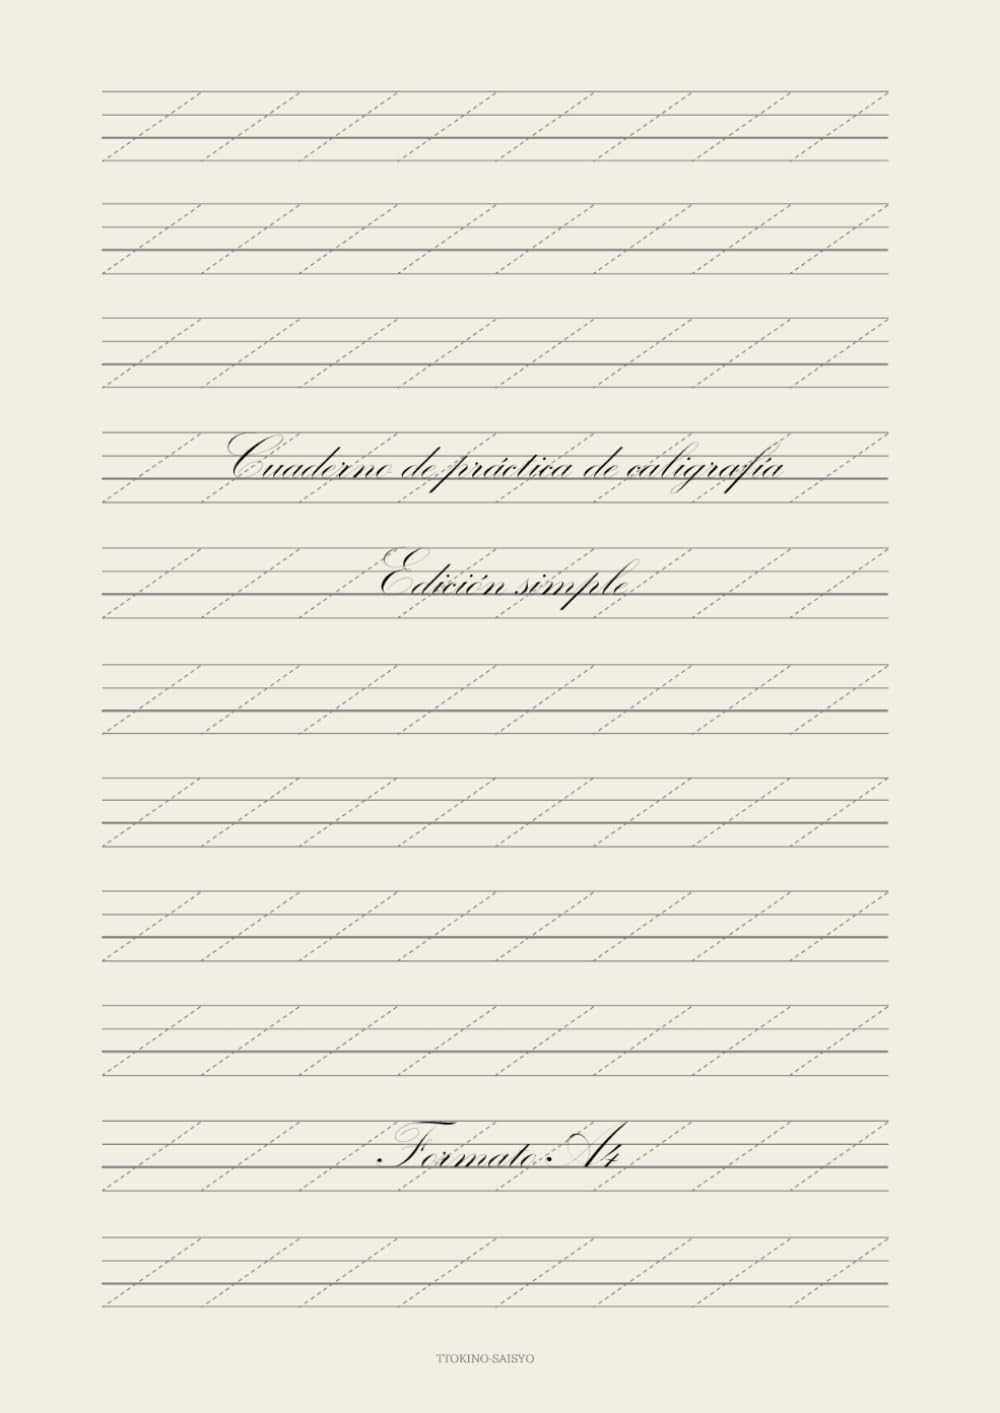 Cuaderno de práctica de caligrafía
Edición simple
Formato: A4
TTOKINO-SAISYO